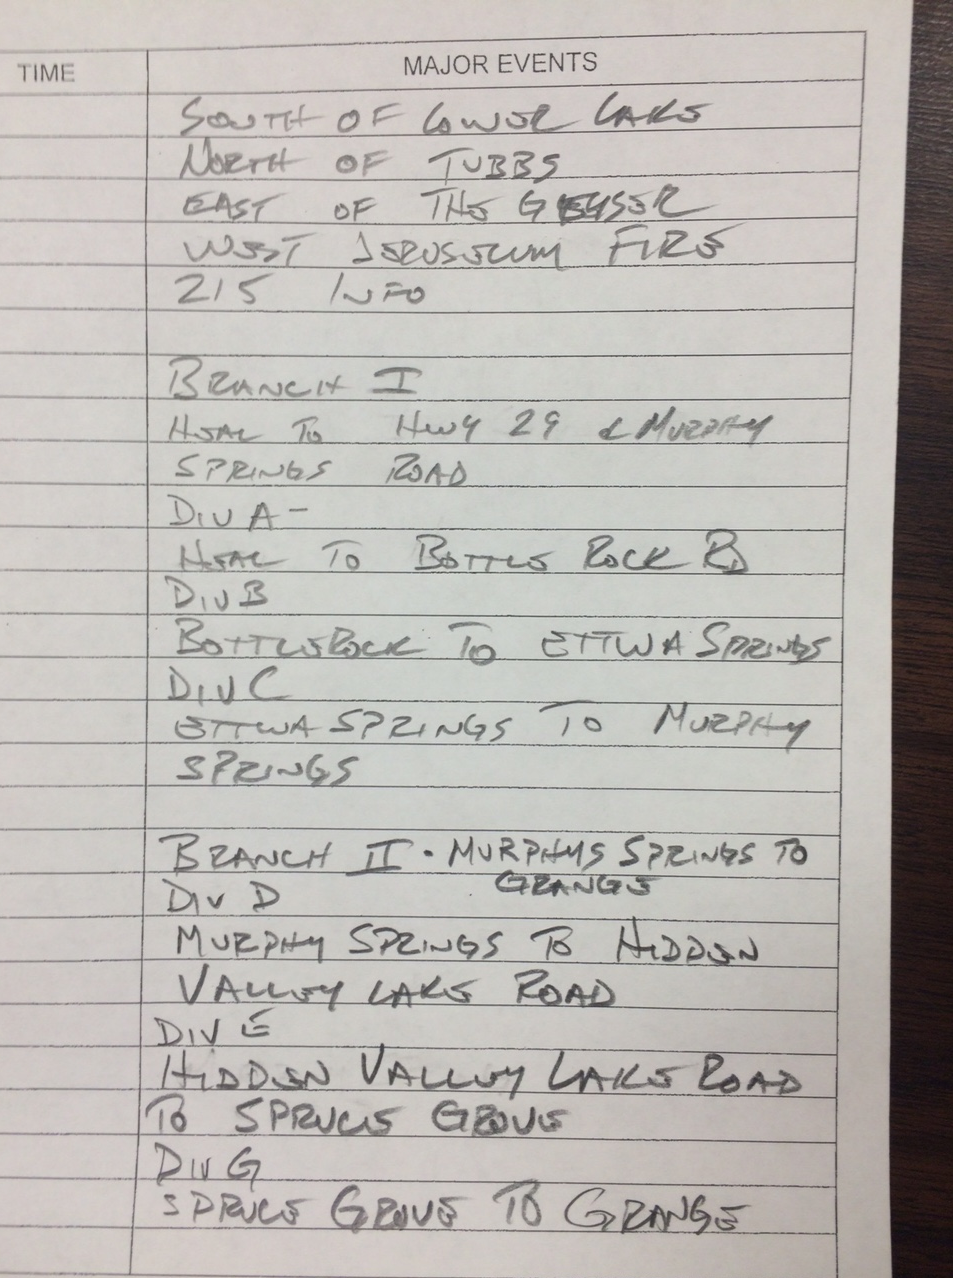 TIME MAJOR EVENTS
SOUTH OF LOWER LAKE
NORTH OF TUBBS
EAST OF THE GEYSER
WEST JERUSELUM FIRE
215 INFO
BRANCH I
HEAL TO HWY 29 & MURPHY
SPRINGS ROAD
DIV A-
HEAL TO BOTTLE ROCK RD
DIV B
BOTTLEROCK TO ETTWA SPRINGS
DIV C
ETTWA SPRINGS TO MURPHY
SPRINGS
BRANCH II · MURPHYS SPRINGS TO
GRANGE
DIV D
MURPHY SPRINGS TO HIDDEN
VALLEY LAKE ROAD
DIV E
HIDDEN VALLEY LAKE ROAD
TO SPRUCE GROVE
DIV G
SPRUCE GROVE TO GRANGE